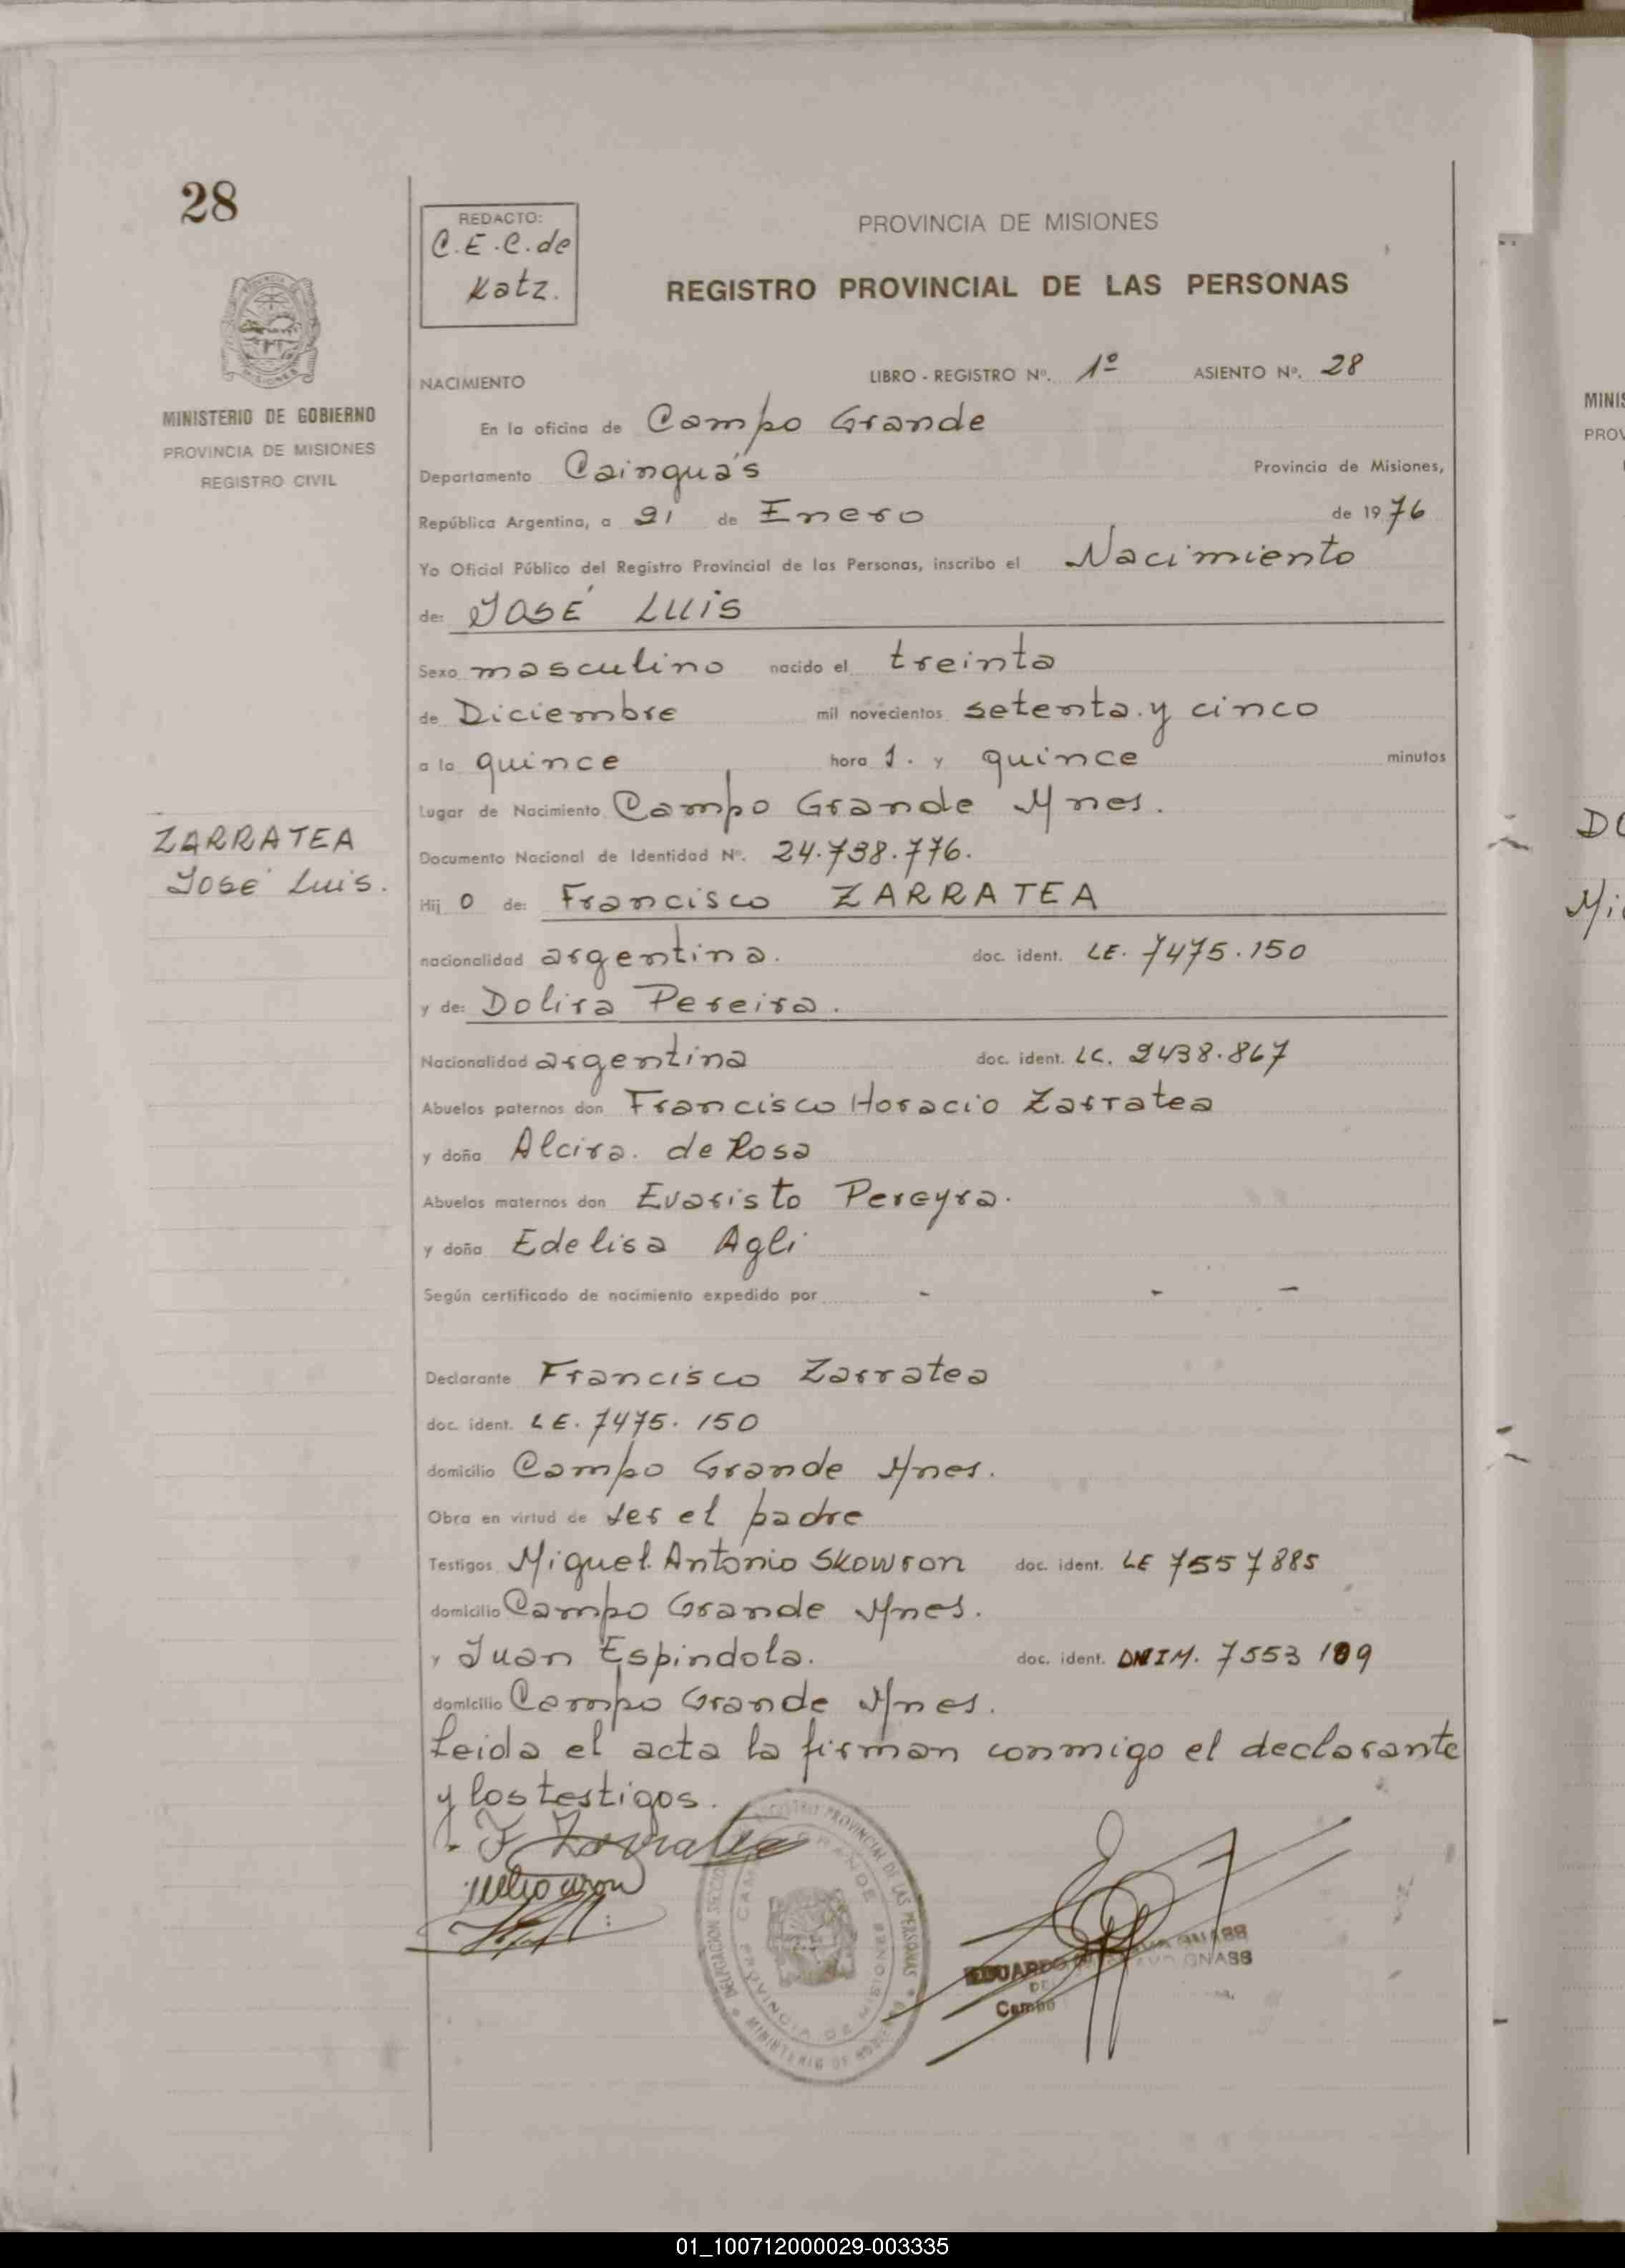 28
REDACTO:
C.E.C. de
Katz.
PROVINCIA DE MISIONES
REGISTRO PROVINCIAL DE LAS PERSONAS
MINISTERIO DE GOBIERNO
PROVINCIA DE MISIONES
REGISTRO CIVIL
NACIMIENTO LIBRO - REGISTRO Nº. 1º ASIENTO Nº. 28
En la oficina de Campo Grande
Departamento Cainguás Provincia de Misiones,
República Argentina, a 21 de Enero de 1976
Yo Oficial Público del Registro Provincial de las Personas, inscribo el Nacimiento
de: JOSÉ LUIS
Sexo masculino nacido el treinta
de Diciembre mil novecientos setenta y cinco
a la quince hora 1. y quince minutos
Lugar de Nacimiento Campo Grande Mnes.
Documento Nacional de Identidad Nº. 24.738.776.
ZARRATEA
José Luis.
Hij o de: Francisco ZARRATEA
nacionalidad argentina. doc. ident. LE. 7475.150
y de: Dolira Pereira.
Nacionalidad argentina doc. ident. LC. 2438.867
Abuelos paternos don Francisco Horacio Zarratea
y doña Alcira. de Rosa
Abuelos maternos don Evaristo Pereyra.
y doña Edelisa Agli
Según certificado de nacimiento expedido por - - -
Declarante Francisco Zarratea
doc. ident. LE. 7475. 150
domicilio Campo Grande Mnes.
Obra en virtud de ser el padre
Testigos Miguel Antonio Skowron doc. ident. LE 7557885
domicilio Campo Grande Mnes.
y Juan Espindola. doc. ident. DNIM. 7553 189
domicilio Campo Grande Mnes.
Leida el acta la firman conmigo el declarante
y los testigos.
F Zarratea
REGISTRO PROVINCIAL DE LAS PERSONAS
CAMPO GRANDE
PROVINCIA DE MISIONES
MINISTERIO DE GOBIERNO
EDUARDO
GNASS
Campo
MINIS
PROV
DO
Mi
01_100712000029-003335